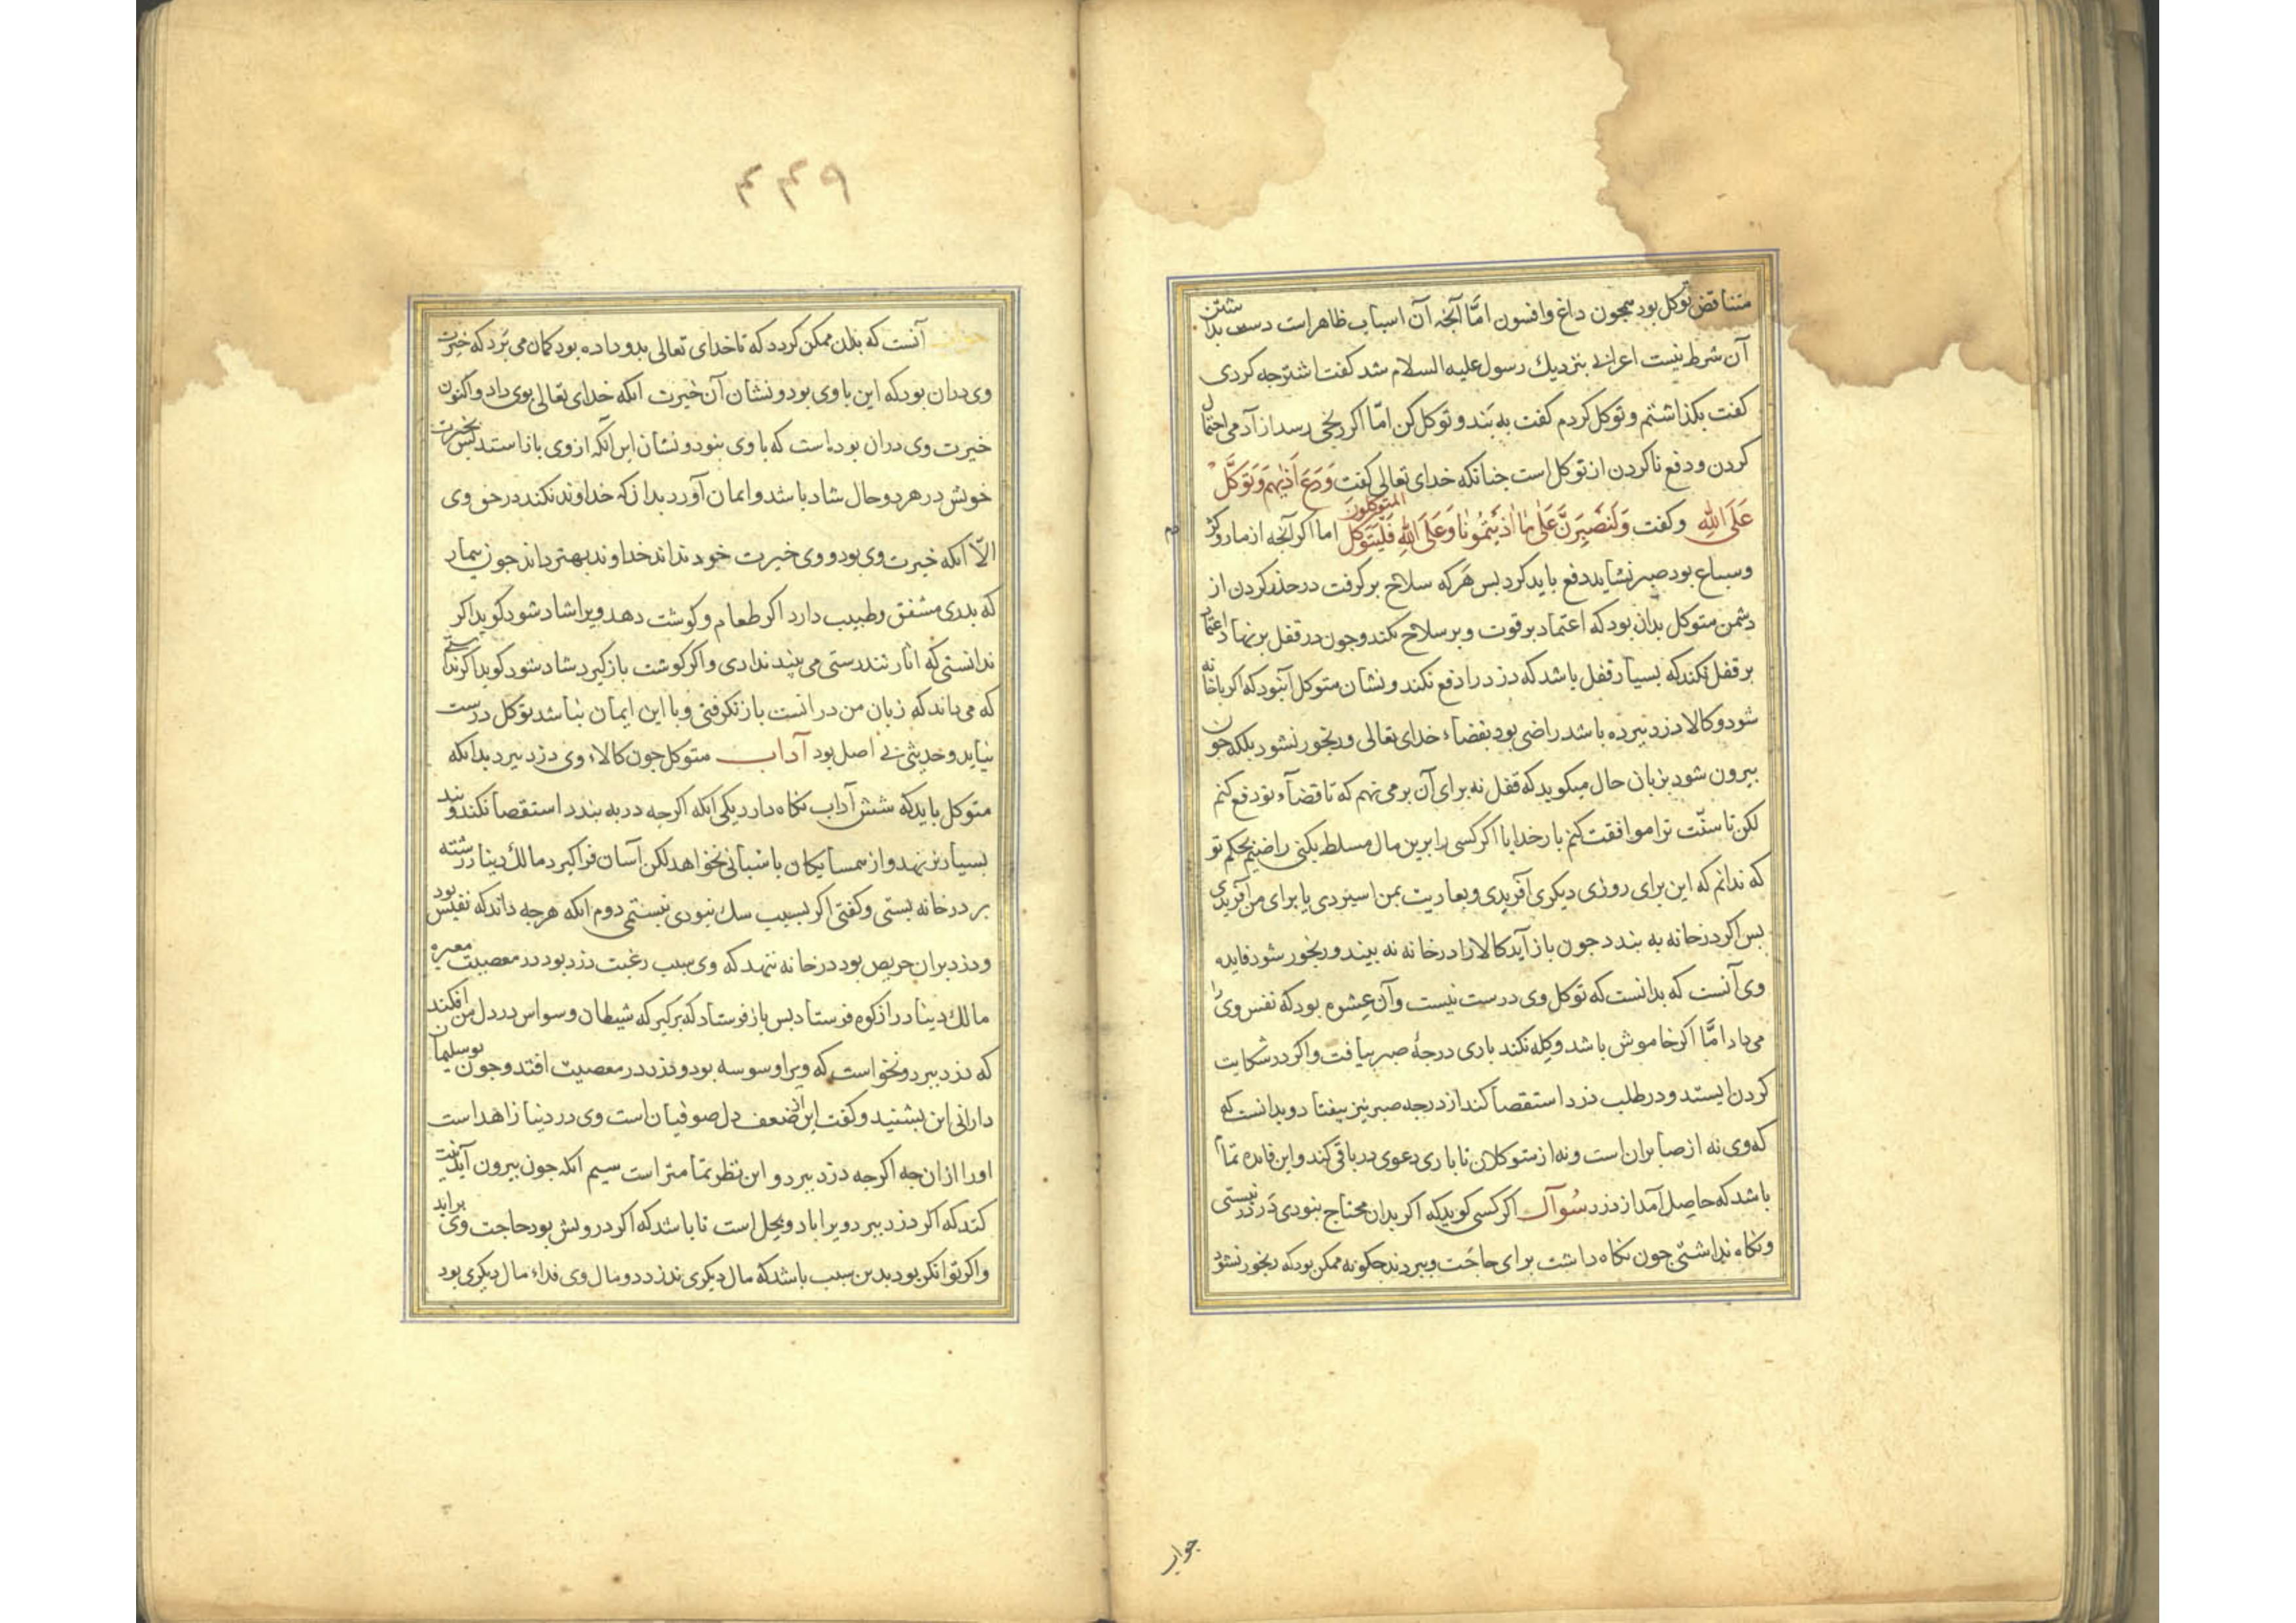 متناقض توکل بود همچون داغ و افسون امّا آنجه آن اسباب ظاهراست دست بداشتن
آن شرط نیست اعرابی بنزدیك رسول علیه السلام شد کفت اشتر جه کردی
کفت بکذاشتم و توکل کردم کفت به بند و توکل کن امّا اکر رنجی رسد از آدمی احتمال
کردن و دفع ناکردن از توکل است جنانکه خدای تعالی کفت وَدَع اَذٰیهم وَتَوَکَّلْ
عَلَی اللهِ وکفت وَلَنَصبِرَنَّ عَلٰی مٰا اٰذَیتُمُونٰا وَعَلَی اللهِ فَلْیَتَوَکَّلِ المتوکلون اما اکر آنجه از مار و کژدم
و سباع بود صبر نشاید دفع باید کرد بس هرکه سلاح برکرفت در حذر کردن از
دشمن متوکل بدان بود که اعتماد بر قوت و بر سلاح نکند و جون در قفل بر نهاد اعتماد
بر قفل نکند که بسیار قفل باشد که دزد را دفع نکند و نشان متوکل آنبود که اکر باخانه
شود و کالا دزد ببرده باشد راضی بود بقضاء خدای تعالی و رنجور نشود بلکه جون
بیرون شود بزبان حال میکوید که قفل نه برای آن بر می نهم که تا قضآء تو دفع کنم
لکن تا سنّت ترا موافقت کنم بار خدایا اکر کسی را برین مال مسلط بکنی راضیم بحکم تو
که ندانم که این برای روزی دیکری آفریدی و بعاریت بمن اسپردی یا برای من آفریدی
بس اکر در خانه به بندد جون باز آید کالا را در خانه نه بیند و رنجور شود فایده
وی آنست که بدانست که توکل وی درست نیست و آن عشوه بود که نفس وی را
می داد امّا اکر خاموش باشد و کله نکند باری درجهٔ صبر بیافت و اکر در شکایت
کردن ایستد و در طلب دزد استقصا کند از درجه صبر نیز بیفتاد و بدانست که
که وی نه از صابران است و نه از متوکلان تا باری دعوی در باقی کند و این فایده تمام
باشد که حاصل آمد از دزد سُوآل اکر کسی کوید که اکر بدان محتاج نبودی در نبستی
و نکاه نداشتی جون نکاه داشت برای حاجت و ببردند جکونه ممکن بود که رنجور نشود
جواب
۴۴۹
جواب آنست که بدان ممکن کردد که تا خدای تعالی بدو داده بود کمان می برد که خیرت
وی دران بود که این با وی بود و نشان آن خیرت آنکه خدای تعالی بوی داد و اکنون
خیرت وی دران بوده است که با وی نبود و نشان این آنکه از وی باز استد بس بخیرت
خویش در هر دو حال شاد باشد و ایمان آورد بدانکه خداوند نکند در حق وی
الّا آنکه خیرت وی بود و وی خیرت خود نداند خداوند بهتر داند جون بیمار
که بدری مشفق و طبیب دارد اکر طعام و کوشت دهد ویرا شاد شود کوید اکر
ندانستی که آثار تندرستی می بیند ندادی و اکر کوشت باز کیرد شاد شود کوید اکر ندانستی
که می داند که زیان من در انست باز نکرفتی و با این ایمان نباشد توکل درست
نیاید و حدیثی بی اصل بود آداب متوکل جون کالاء وی دزد ببرد بدانکه
متوکل باید که شش آداب نکاه دارد یکی آنکه اکرجه در به بندد استقصا نکند و بند
بسیار بر ننهد و از همسایکان باسبانی نخواهد لکن آسان فرا کیرد مالك دینار رشته
بر در خانه بستی و کفتی اکر بسبب سك نبودی نبستمی دوم آنکه هرجه داند که نفیس بود
و دزد بران حریص بود در خانه ننهد که وی سبب رغبت دزد بود در معصیت مغیره
مالك دینار را زکوه فرستاد بس باز فرستاد که برکیر که شیطان وسواس در دل من افکند
که دزد ببرد و نخواست که ویرا وسوسه بود و دزد در معصیت افتد و جون بوسلیمان
دارانی این بشنید و کفت این از ضعف دل صوفیان است وی در دنیا زاهد است
اورا ازان جه اکرجه دزد ببرد و این نظر تمامتر است سیم آنکه جون بیرون آید نیت
کند که اکر دزد ببرد ویرا باد و بحل است تا باشد که اکر درویش بود حاجت وی براید
و اکر توانکر بود بدین سبب باشد که مال دیکری ندزدد و مال وی فداء مال دیکری بود